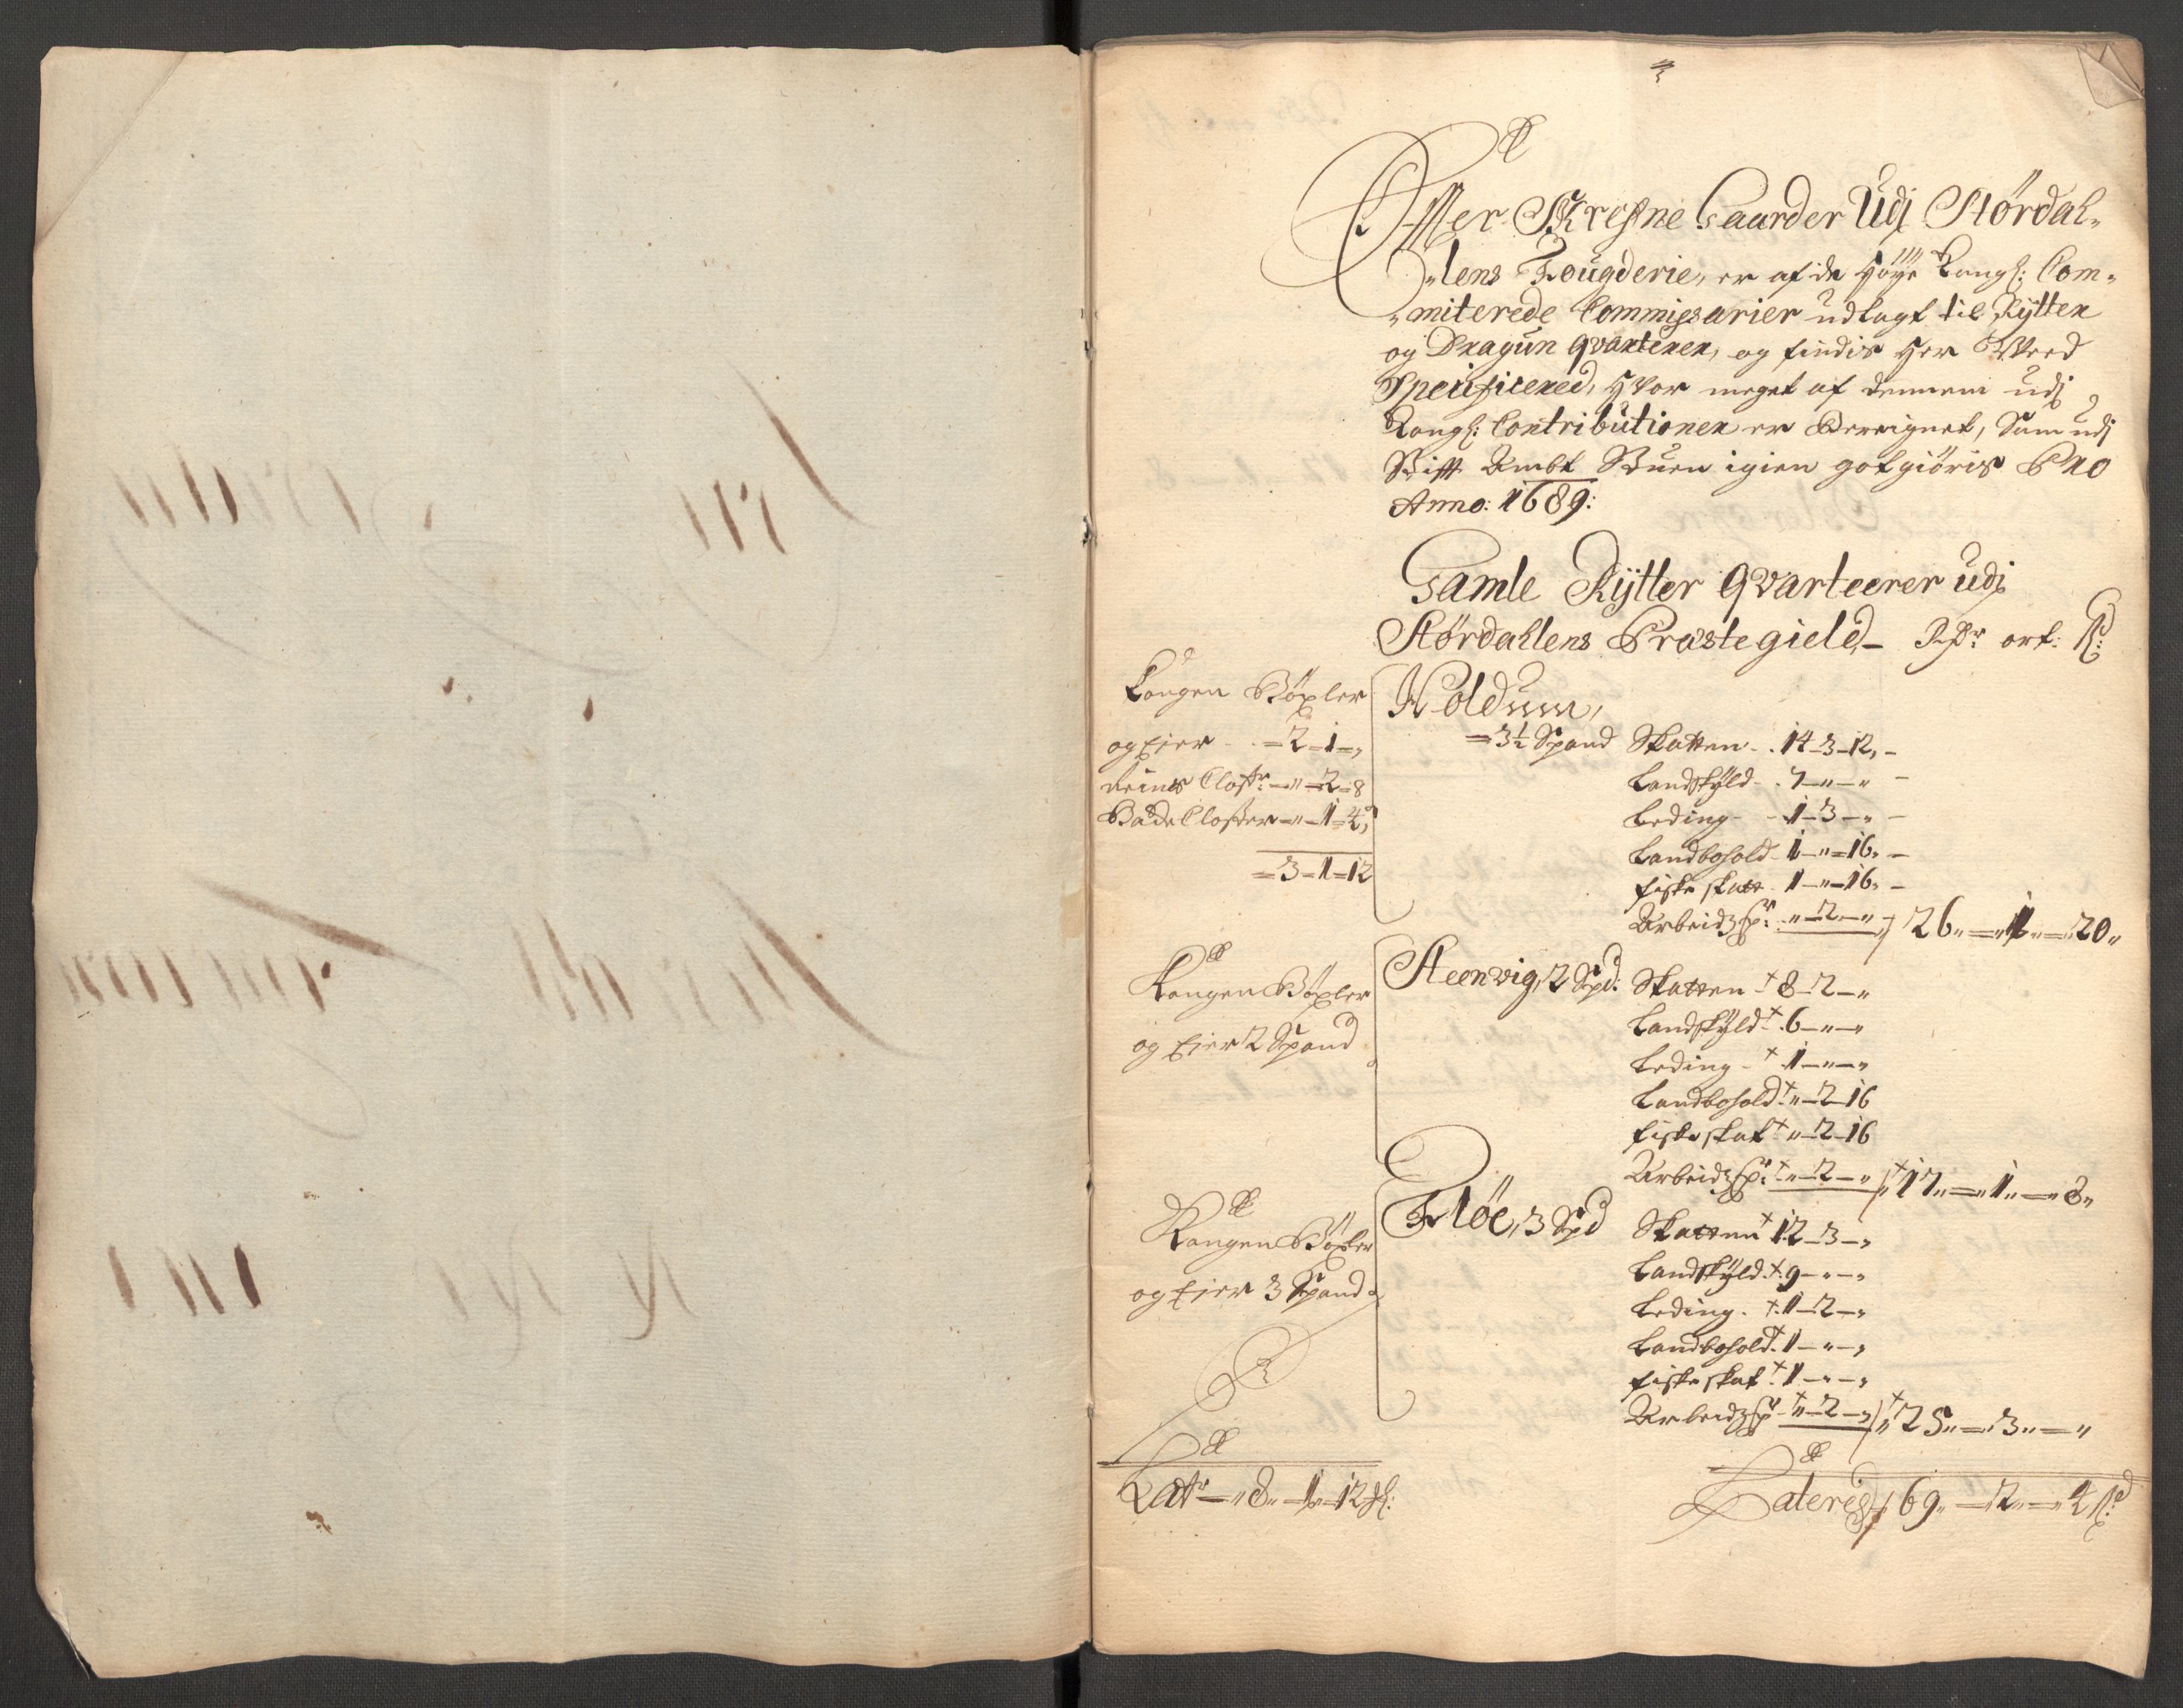 Effter Skrefne Gaarder Udj Størdah-
lens Fougderie, er af de høÿe Kongl: Com-
miterede Commissarier udlagt til Rÿtter
og Dragun qvarterer, og findis her Weed
Specificered, hvor meget af dennem udj
Kongl: Contributionen er Bereignet, Som udj
Stifft Ambt Skuen igien gotgiöris Pro
Anno: 1689:
Gamle Rÿtter qvarteerer udj
Størdahlens Præstegield - Rdr ort: s:
Kongen Böxler
og Eier - - 2 - 1 - „
Reins Closter - „ - 2 - 8
Bache Closter - „ - 1 - 4
3 - 1 - 12
Holdum,
3½ Spand
Skatten - . 14 - 3 - 12, -
Landskÿld - . 7 - „ - „ -
Leding - - 1 - 3 - „ -
Landbohold - 1 - „ - 16, -
fiske skatt - 1 - „ - 16, -
Arbeidzp: „ - 2 - „ 26 „ 1 „ 20 „
Kongen Böxler
og Eier 2 Spand
Steenvig, 2 Spd:
Skatten - 8 - 2 - „
Landskÿld - 6 - „ - „
Leding - 1 - „ - „
Landbohold - „ - 2 - 16
fiske skat - „ - 2 - 16
Arbeidzp: „ - 2 - „ 17 „ 1 „ 8 „
Kongen Böxler
og Eier 3 Spand
Fløe, 3 Spd
Skatten 12 - 3 - „
Landskÿld - 9 - „ - „
Leding - 1 - 2 - „
Landbohold - 1 - „ - „
fiske skat - 1 - „ - „
Arbeidzp - „ - 2 - „ 25 „ 3 „ - „
Latr - „ 8 „ 1 „ 12 s:
Lateris 69 „ 2 „ 4 s: